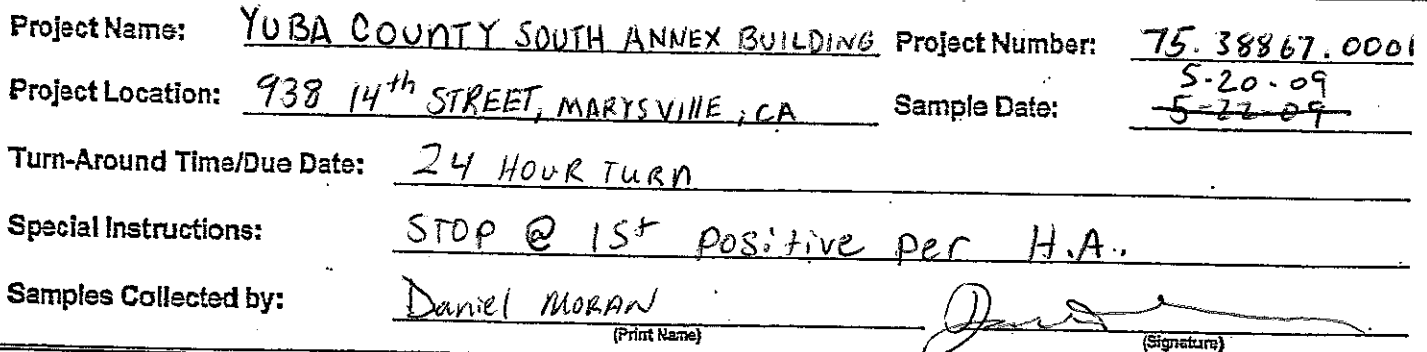 Project Name: YUBA COUNTY SOUTH ANNEX BUILDING Project Number: 75.38867.0001
5-20-09
Project Location: 938 14th STREET, MARYSVILLE, CA Sample Date: 5-22-09
Turn-Around Time/Due Date: 24 HOUR TURN
Special Instructions: STOP @ 1st positive per H.A.
Samples Collected by: Daniel MORAN
(Print Name) (Signature)